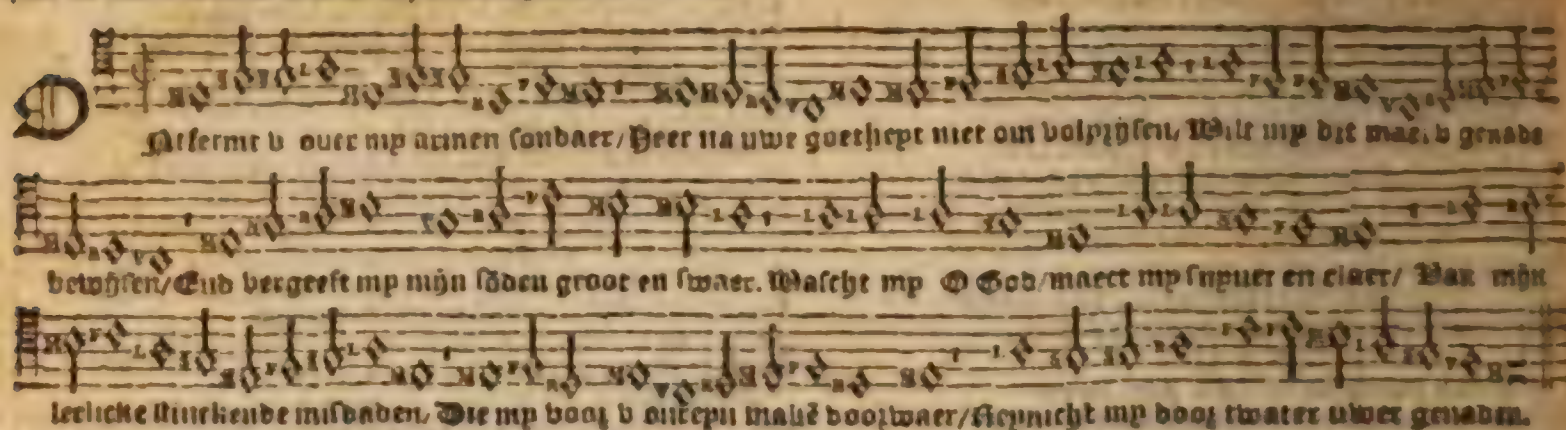 Ontfermt v ouer my armen sondaer/ Heer na uwe goetheyt niet om volprijsen, Wilt my dit mael v genade
bewijsen/ End vergeeft my mijn söden groot en swaer. Wascht my O God/ maect my suyuer en claer/ Van mijn
leelicke stinckende misdaden, Die my voor v onreyn makē voorwaer/ Reynicht my door twater uwer genaden.